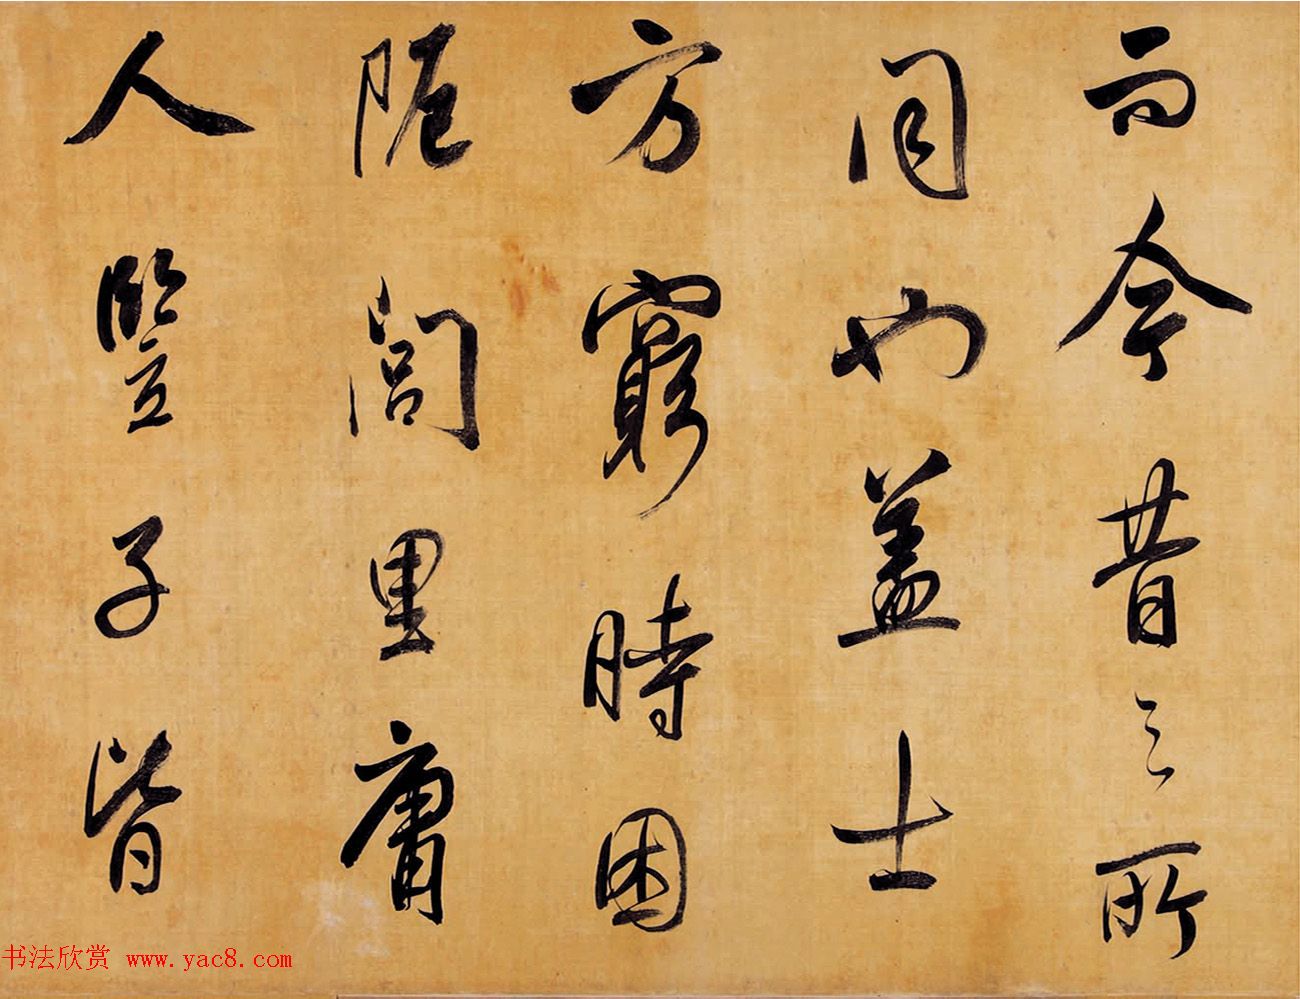 而今昔之所
同也蓋士
方窮時困
阨閭里庸
人豎子皆
书法欣赏 www.yac8.com